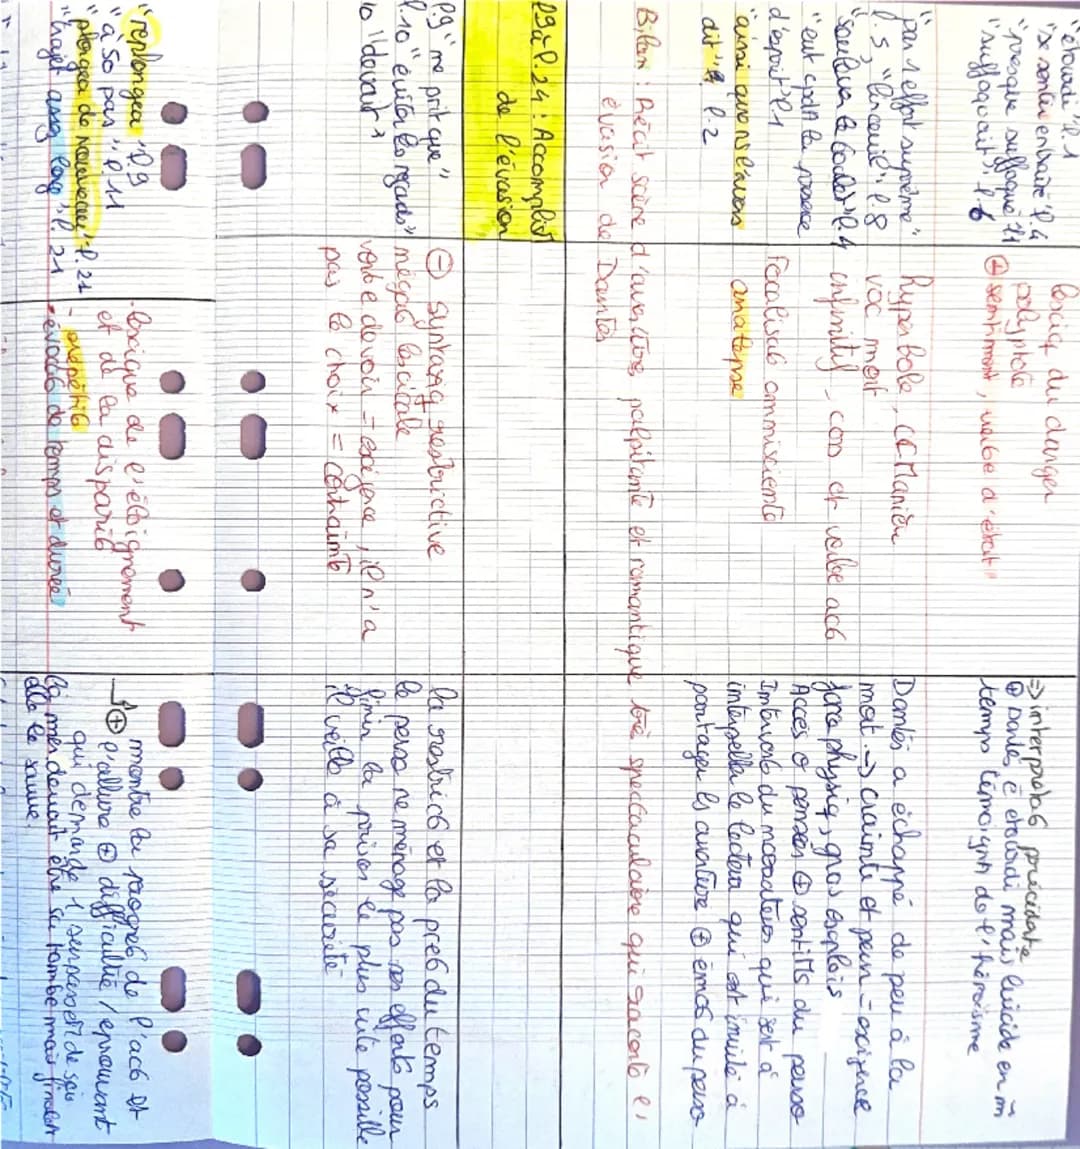 "étourdi" l.1
"se sentit entraîné" l.4
"presque suffoqué" l1
"suffoquait" l.6
lexiq du danger
polyptote
⊕ sentiment, verbe d'état
=> interprétat° précédate
⊕ Dantès è étourdi mais lucide en m̃
temps témoigne de l'héroïsme
"par 1 effort suprême"
l.5, "linceuil" l.8
"souleva le boulet" l.4
"eut cpdt la présence
d'esprit" l.1
"ainsi que ns l'avons
dit" l.2
hyperbole, CC Manière
voc mort
infinitif, con et verbe act°
Focalisat° omnisciente
analepse
Dantès a échappé de peu à la
mort -> crainte et peur = exigence
force physiq, gros exploits
Accès o pensées ⊕ sentits du perso
Intrus° du narrateur qui sert à
interpeller le lecteur qui est invité à
partager les aventures ⊕ émot° du perso
Bilan : Récit scène d'aventures palpitante et romantique très spectaculaire qui raconte l'
évasion de Dantès
l9 à l.24 : Accomplist
de l'évasion
l9 "ne prit que"
l.10 "évita les regards"
10 "devait"
⊖ syntaxiq restrictive
négat° lexicale
verbe devoir = exigence, il n'a
pas le choix = contrainte
la restrict° et la préc° du temps
le perso ne ménage pas ses efforts pour
fuir la prison le plus vite possible
Il veille à sa sécurité
"replongea" l.9
"à 50 pas" l.11
"plongea de nouveau" l.21
"trajet assez long" l.21
- lexique de l'éloignement
et de la disparit°
- répétit°
- évocat° de temps et durée
montre la progres° de l'act° et
-> ⊕ l'allure ⊕ difficulté / éprouvant
qui demande 1 surpassemt de soi
La mer devait être sa tombe mais finalemt
elle le sauve.